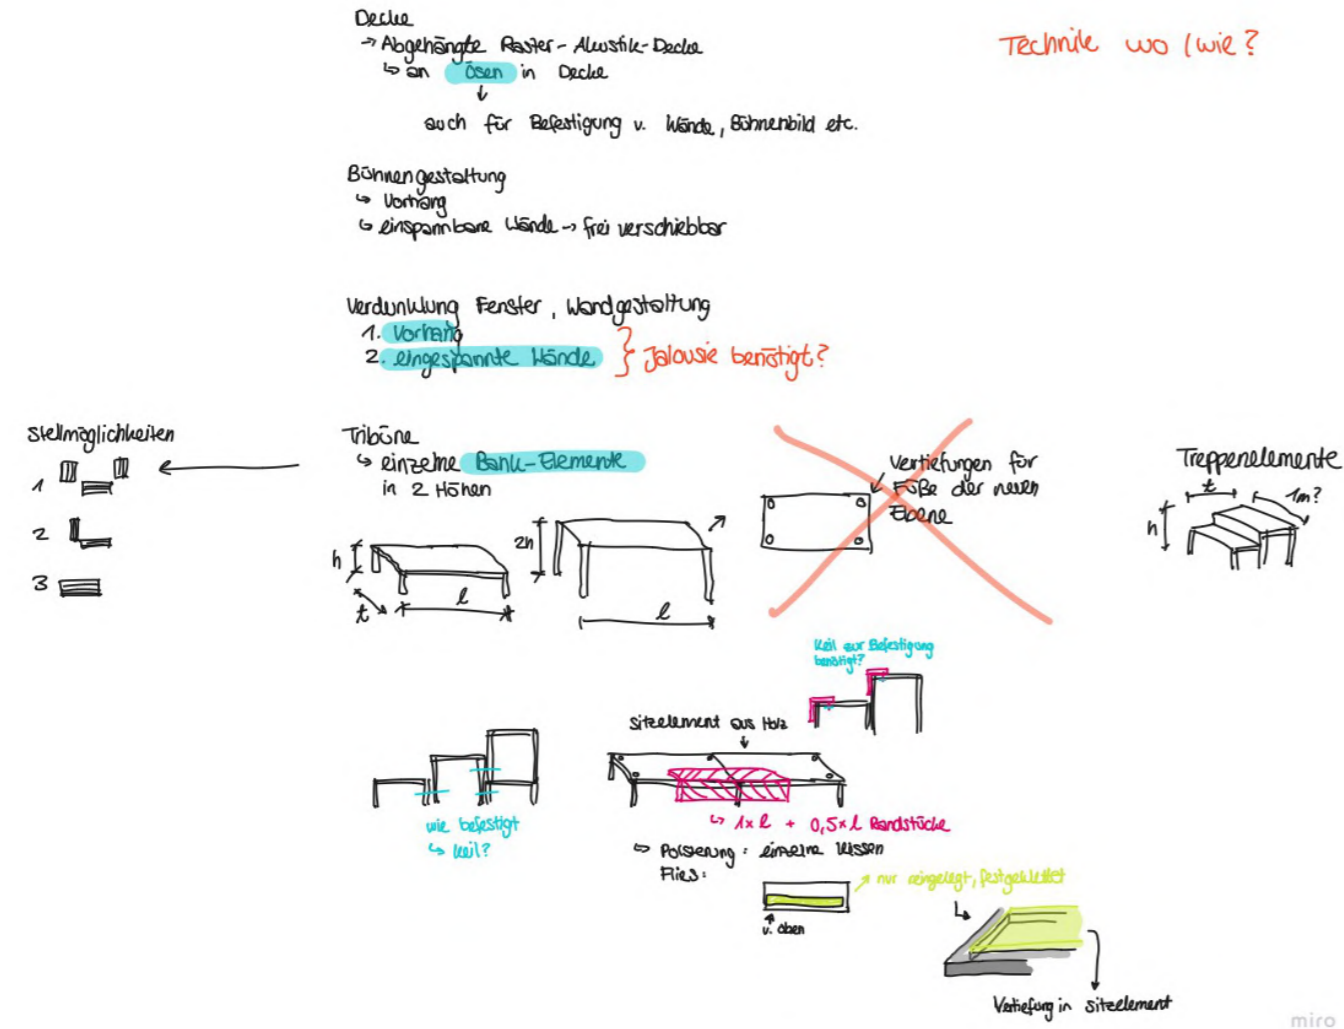 Decke
→ Abgehängte Raster-Akustik-Decke
↳ an Ösen in Decke
↓
auch für Befestigung v. Wände, Bühnenbild etc.
Technik wo / wie?
Bühnengestaltung
↳ Vorhang
↳ einspannbare Wände → frei verschiebbar
Verdunklung Fenster, Wandgestaltung
1. Vorhang
2. eingespannte Wände } Jalousie benötigt?
Stellmöglichkeiten
1
2
3
Tribüne
↳ einzelne Bank-Elemente
in 2 Höhen
h
t
l
2h
l
Vertiefungen für
Füße der neuen
Ebene
Treppenelemente
t
1m?
h
Keil zur Befestigung
benötigt?
wie befestigt
↳ Keil?
Sitzelement aus Holz
↳ 1x l + 0,5x l Randstücke
⇨ Polsterung: einzelne Kissen
Flies:
v. oben
nur reingelegt, festgeklettet
Vertiefung in Sitzelement
miro